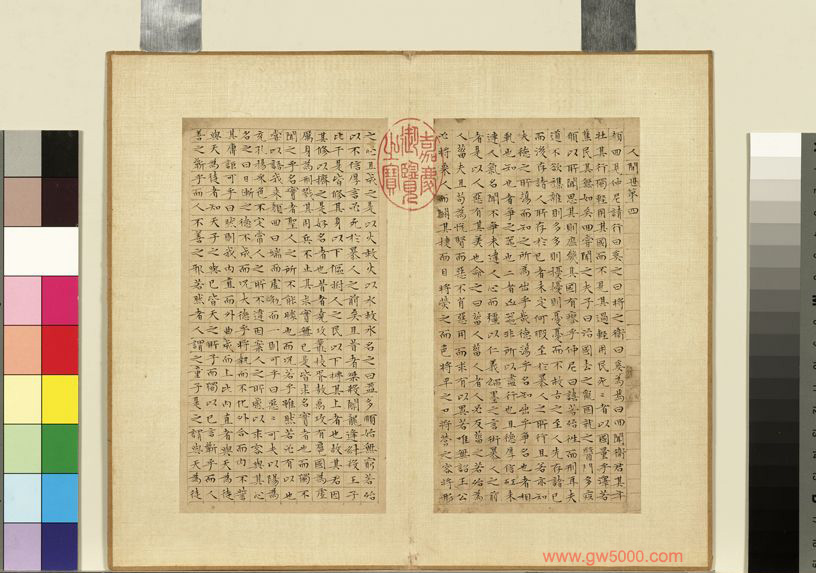 人間世第四
顏回見仲尼請行曰奚之曰將之衛曰奚為焉曰回聞衛君其年
壯其行獨輕用其國而不見其過輕用民死死者以國量乎澤若
蕉民其無如矣回嘗聞之夫子曰治國去之亂國就之醫門多疾
願以所聞思其則庶幾其國有瘳乎仲尼曰譆若殆往而刑耳夫
道不欲雜雜則多多則擾擾則憂憂而不救古之至人先存諸己
而後存諸人所存於己者未定何暇至於暴人之所行且若亦知
夫德之所蕩而知之所為出乎哉德蕩乎名知出乎爭名也者相
軋也知也者爭之器也二者凶器非所以盡行也且德厚信矼未
達人氣名聞不爭未達人心而彊以仁義繩墨之言術暴人之前
者是以人惡有其美也命之曰菑人菑人者人必反菑之若殆為
人菑夫且苟為悅賢而惡不肖惡用而求有以異若唯無詔王公
必將乘人而鬬其捷而目將熒之而色將平之口將營之容將形
嘉慶御覽之寶
之心且成之是以火救火以水救水名之曰益多順始無窮若殆
以不信厚言必死於暴人之前矣且昔者桀殺關龍逢紂殺王子
比干是皆修其身以下傴拊人之民以下拂其上者也故其君因
其修以擠之是好名者也昔者堯攻叢枝胥敖禹攻有扈國為虛
厲身為刑戮其用兵不止其求實無已是皆求名實者也而獨不
聞之乎名實者聖人之所不能勝也而況若乎雖然若必有以也
嘗以語我來顏回曰端而虛勉而一則可乎曰惡惡可夫以陽為
充孔揚采色不定常人之所不違因案人之所感以求容與其心
名之曰日漸之德不成而況大德乎將執而不化外合而內不訾
其庸詎可乎曰然則我內直而外曲成而上比內直者與天為徒
與天為徒者知天子之與己皆天之所子而獨以己言蘄乎而人
善之蘄乎而人不善之邪若然者人謂之童子是之謂與天為徒
www.gw5000.com